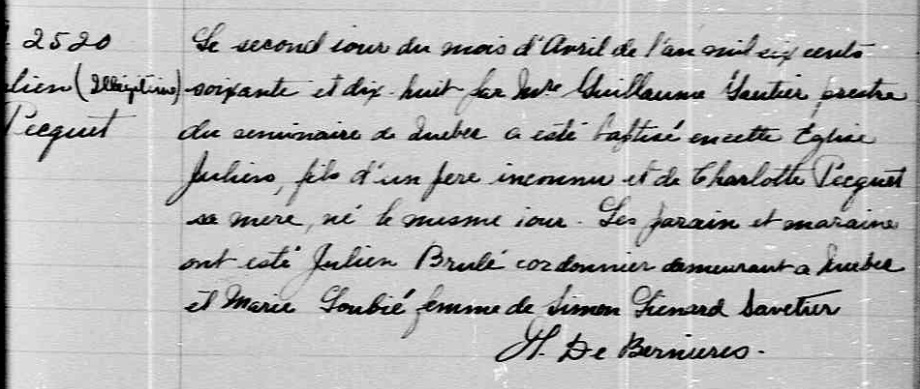 2520
lien (Illegitime)
Pecquet
Le second iour du mois d'Avril de l'an mil six cents
soixante et dix huit par Mre Guillaume Gautier prestre
du seminaire de Quebec a esté baptisé en cette Église
Julien, fils d'un pere inconnu et de Charlotte Pecquet
sa mere, né le mesme iour. Les parain et maraine
ont esté Julien Brulé cordonnier demeurant a Quebec
et Marie Loubié femme de Simon Lienard Savetier
H. De Bernieres.